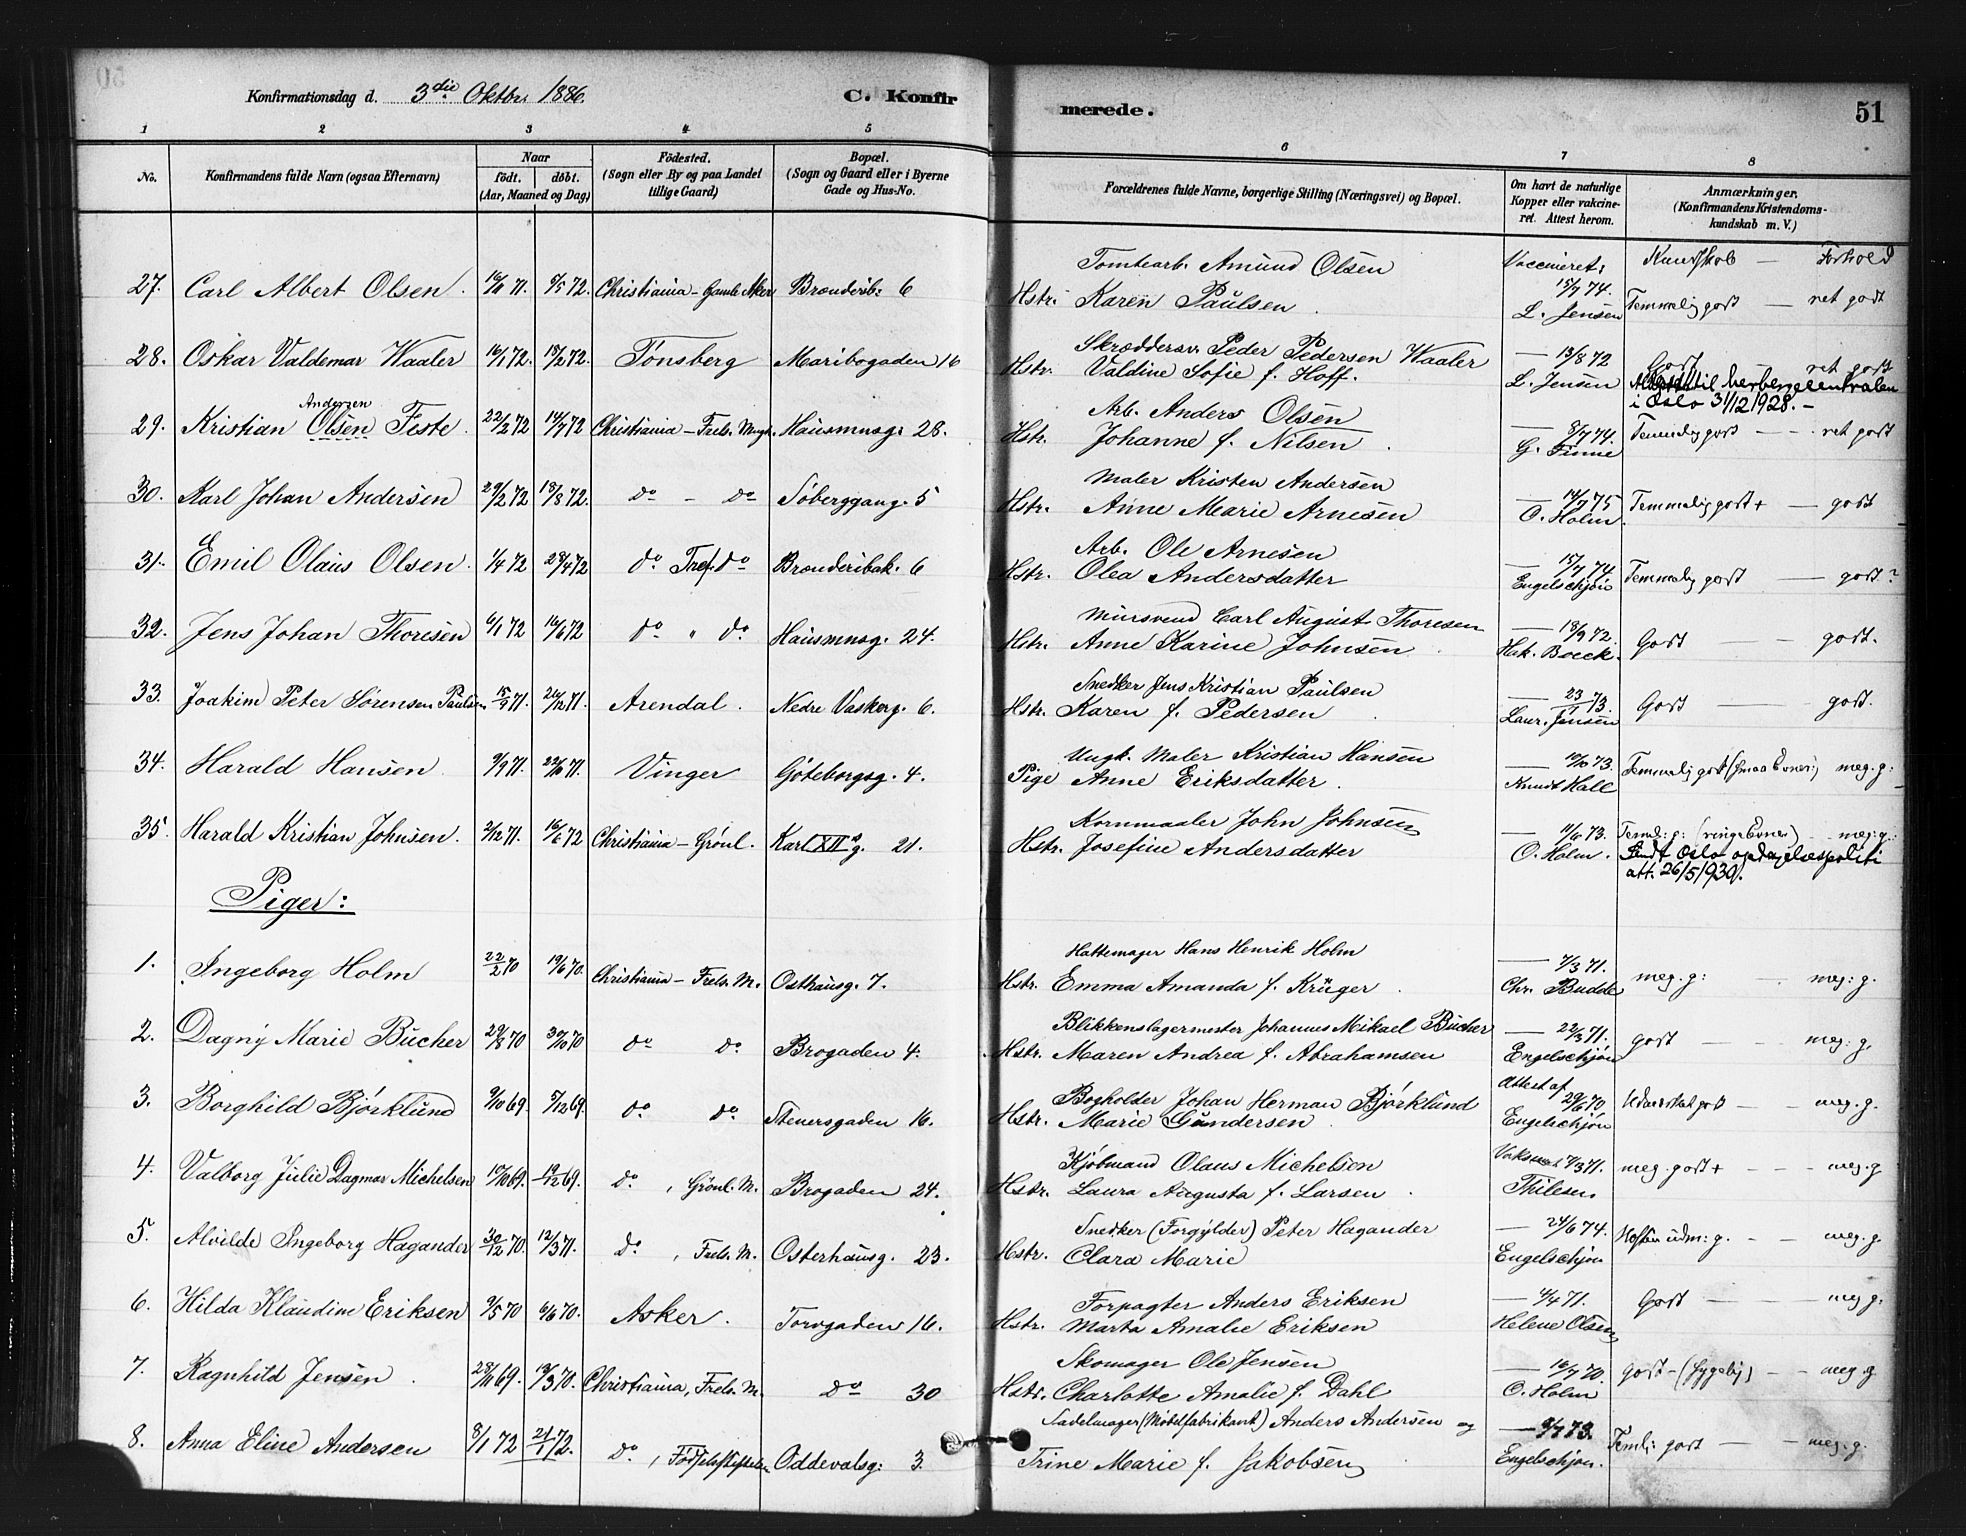 Konfirmationsdag d. 3die Oktbr. 1886. C. Konfirmerede. 51
1 2 3 4 5 6 7 8
No. Konfirmandens fulde Navn (ogsaa Efternavn) Naar født. døbt. (Aar, Maaned og Dag) Födested. (Sogn eller By og paa Landet tillige Gaard) Bopæl. (Sogn og Gaard eller i Byerne Gade og Hus-No. Forældrenes fulde Navne, borgerlige Stilling (Næringsvei) og Bopæl. Om havt de naturlige Kopper eller vakcineret. Attest herom. Anmærkninger. (Konfirmandens Kristendomskundskab m. V.)
Tomtearb. Amund Olsen Vaccineret: Kundskab — Forhold
27. Carl Albert Olsen. 16/11 71. 9/5 72. Christiania - Gamle Aker Brenderib: 6 Hstr: Karen Paulsen. 15/7 74. L. Jensen Temmelig godt — ret godt
Skræddersv. Peder Pedersen Waaler
28. Oskar Valdemar Waaler 16/1 72. 18/2 72. Tønsberg Maribogaden 16 Hstr. Valdine Sofie f. Hoff. — 13/8 72 L. Jensen Godt ret godt
Attest til herbergecentralen
i Oslo 31/12 1928. -
Andersen Arb. Anders Olsen
29. Kristian Olsen Teste. 22/2 72 14/7 72 Christiania - Frels. Hausmnsg: 28. Hstr. Johanne f. Nilsen. — 8/7 74. G. Finne Temmelig godt — ret godt
Maler Kristen Andersen
30. Karl Johan Andersen 29/2 72 18/8 72. do - do Søberggang. 5 Hstr. Anne Marie Arnesen — 14/7 75 O. Holm. Temmelig godt + — godt
Arb. Ole Arnesen
31. Emil Olaus Olsen. 1/4 72 28/4 72 do Tref. do Brenderibak. 6 Hstr. Olea Andersdatter — 15/7 74. Engelschjøn Temmelig godt — godt?
Mursvend Carl August Thoresen
32. Jens Johan Thoresen 6/1 72 16/6 72 do " do Hausmnsg. 24. Hstr. Anne Karine Johnsen — 18/9 72. Hak. Boeck. Godt — godt.
Snedker Jens Kristian Paulsen
33. Joakim Peter Sørensen Paulsen 15/9 71. 26/12 71. Arendal. Nedre Vaskerg. 6. Hstr. Karen f. Pedersen. — Laur. Jensen Godt — godt.
Ungk. Maler Kristian Hansen
34. Harald Hansen 9/9 71. 22/10 71. Vinger Göteborgsg. 4. Pige Anne Eriksdatter. — 10/10 73. Knudt Hall Temmelig godt (smaa Evner:) meg. g:
Kornmaaler John Johnsen
35. Harald Kristian Johnsen. 2/12 71. 16/6 72 Christiania - Grönl. Karl XII's g. 21. Hstr. Josefine Andersdatter — 11/6 73. O. Holm. Teml: g: (ringe Evner) — meg: g:
Sendt Oslo opdagelsespoliti
att. 26/5 1930.
Piger:
Hattemager Hans Henrik Holm
1. Ingeborg Holm 22/2 70 19/6 70. Christiania - Frels. M. Osthausg. 7. Hstr. Emma Amanda f. Krüger. — 7/3 71. Chr. Budde meg. g: meg: g.
Blikkenslagermester Johannes Mikael Bucher
2. Dagny Marie Bucher 29/8 70 30/10 70 do do Brogaden 4. Hstr. Maren Andrea f. Abrahamsen — 22/3 71. Engelschjøn godt — meg: g.
Bogholder Johan Herman Björklund Attest af
3. Borghild Björklund 9/10 69. 5/12 69. do do Stenersgaden 16. Hstr. Marie Gundersen. 29/6 70 Engelschjøn Udmærket godt — meg. g.
Kjøbmand Olaus Michelsen
4. Valborg Julie Dagmar Michelsen 10/10 69. 19/12 69. do , Grönl. M. Brogaden 24. Hstr. Laura Augusta f. Larsen. 7/3 71. Thilesen meg. godt + — meg. g
Snedker (Forgylder) Peter Hagander
5. Alvilde Ingeborg Hagander 30/12 70. 12/3 71. do , Frels. M. Osterhausg. 23. Hstr. Clara Marie — 24/6 74. Engelschjøn Næsten udm: g. — meg. g.
Forpagter Anders Eriksen
6. Hilda Klaudine Eriksen 9/5 70 6/6 70. Asker. Torvgaden 16. Hstr. Marta Amalie Eriksen — 4/4 71. Helene Olsen Godt — meg g:
Skomager Ole Jensen
7. Ragnhild Jensen. 28/11 69. 13/3 70. Christiania, Frels. M. do 30 Hstr. Charlotte Amalie f. Dahl — 16/7 70. O. Holm godt - (sygelig) — meg. g
Sadelmager (Møbelfabrikant) Anders Andersen og
8. Anna Eline Andersen 8/1 72 21/1 72. do , Fødselsstiftelsen Oddevalsg: 3. Trine Marie f. Jakobsen — 9/7 73. Engelschjøn. Teml: godt — meg. g.